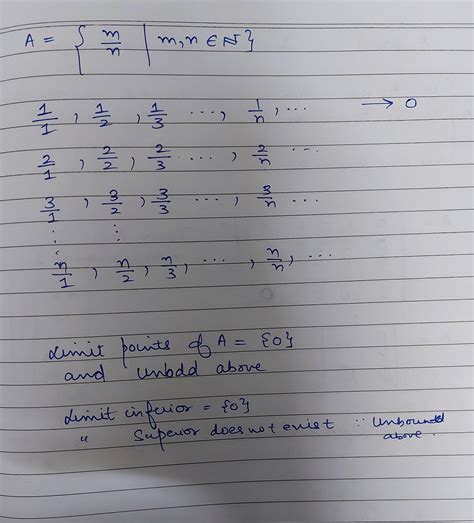 A = { m/n | m, n ∈ N }
1/1 , 1/2 , 1/3 ..., 1/n , ... → 0
2/1 , 2/2 , 2/3 ..., 2/n ...
3/1 , 3/2 , 3/3 ..., 3/n ...
⋮ ⋮
n/1 , n/2 , n/3 , ..., n/n , ...
Limit points of A = {0}
and unbdd above
Limit inferior = {0}
" Superior does not exist ∵ Unbounded
above.